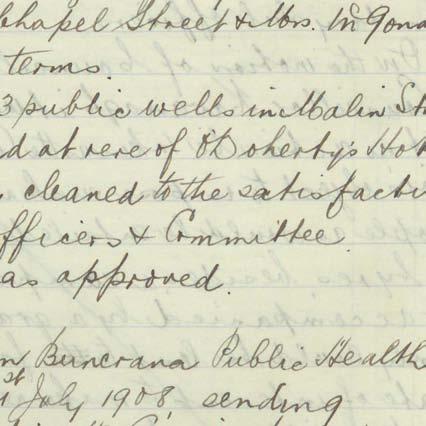 Chapel Street & Mrs. McGona
terms.
3 public wells in Malin St
d at rere of O'Doherty's Hot
cleaned to the satisfacti
fficers & Committee
as approved.
n Buncrana Public Health
st July 1908, sending